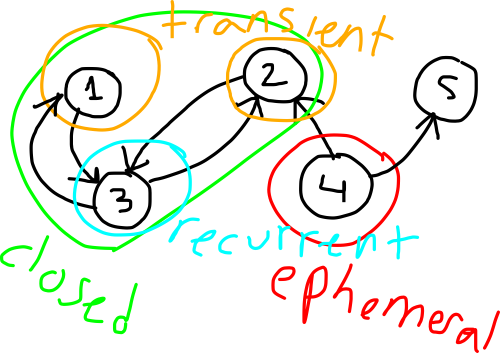 transient
1
2
5
3
4
recurrent
closed
ephemeral